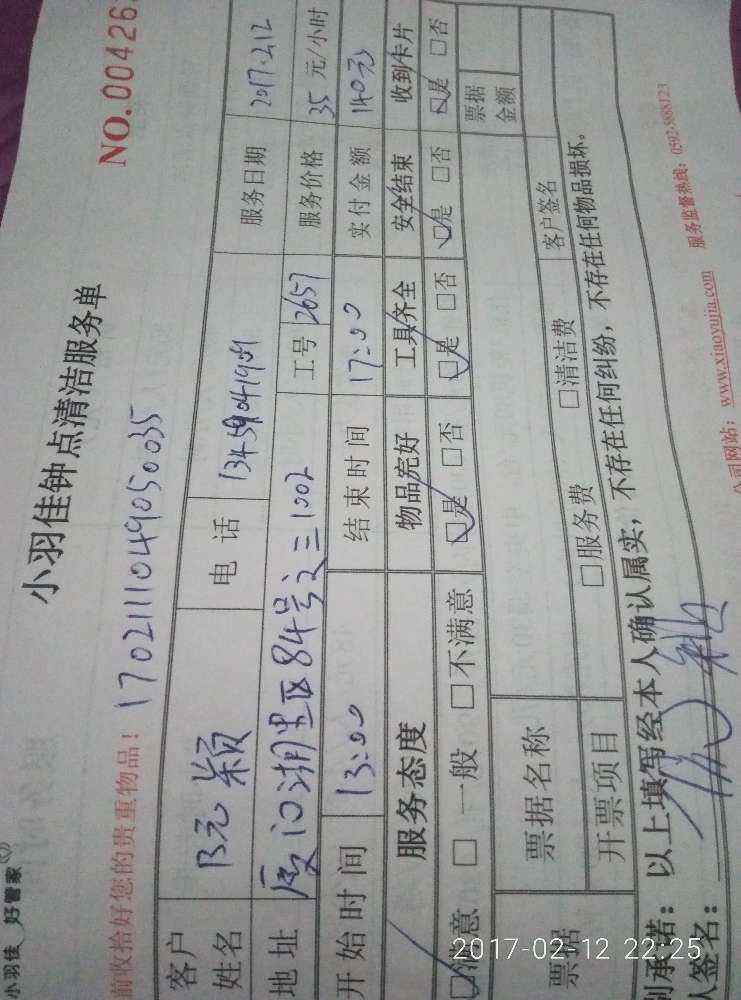 小羽佳 好管家
小羽佳钟点清洁服务单
NO.00426
前收拾好您的贵重物品! 1702111049050035
客户姓名 阮颖 电话 13459041901 服务日期 2017.2.12
地址 厦门湖里区84号之三1002 工号 2657 服务价格 35元/小时
开始时间 13:00 结束时间 17:00 实付金额 140元
服务态度 物品完好 工具齐全 安全结束 收到卡片
满意 □一般 □不满意 □是 □否 □是 □否 □是 □否 □是 □否
票据 票据名称 票据金额
开票项目 □服务费 □清洁费 客户签名
承诺:以上填写经本人确认属实,不存在任何纠纷,不存在任何物品损坏。
人签名:
公司网站:www.xiaoyujia.com 服务监督热线:0592-5888123
2017-02-12 22:25